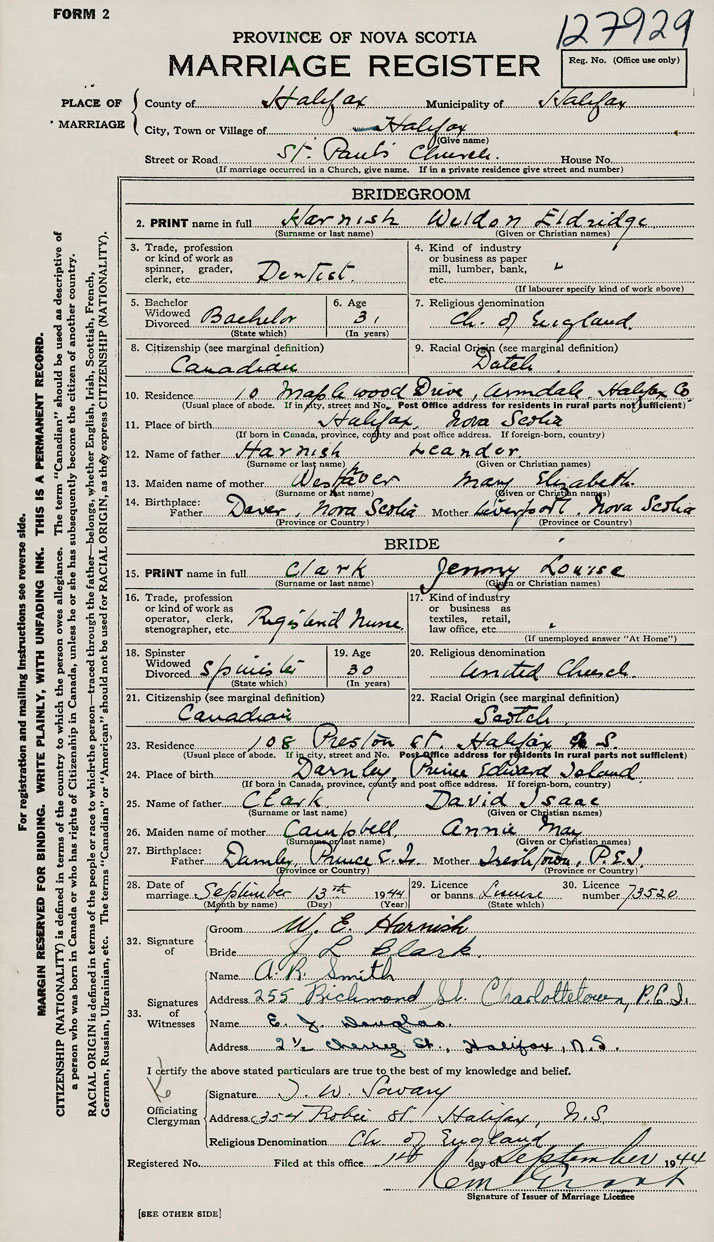 FORM 2
127929
PROVINCE OF NOVA SCOTIA
MARRIAGE REGISTER
Reg. No. (Office use only)
PLACE OF MARRIAGE
County of Halifax Municipality of Halifax
City, Town or Village of Halifax
(Give name)
Street or Road St. Paul's Church. House No.
(If marriage occurred in a Church, give name. If in a private residence give street and number)
BRIDEGROOM
2. PRINT name in full Harnish Weldon Eldridge
(Surname or last name) (Given or Christian names)
3. Trade, profession or kind of work as spinner, grader, clerk, etc. Dentist.
4. Kind of industry or business as paper mill, lumber, bank, etc. "
(If labourer specify kind of work above)
5. Bachelor Widowed Divorced Bachelor (State which)
6. Age 31 (In years)
7. Religious denomination Ch. of England.
8. Citizenship (see marginal definition) Canadian
9. Racial Origin (see marginal definition) Dutch
10. Residence 10 Maplewood Drive, Armdale, Halifax Co
(Usual place of abode. If in city, street and No. Post Office address for residents in rural parts not sufficient)
11. Place of birth Halifax, Nova Scotia
(If born in Canada, province, county and post office address. If foreign-born, country)
12. Name of father Harnish Leander.
(Surname or last name) (Given or Christian names)
13. Maiden name of mother Westhaver Mary Elizabeth.
(Surname or last name) (Given or Christian names)
14. Birthplace: Father Dover, Nova Scotia Mother Liverpool, Nova Scotia
(Province or Country) (Province or Country)
BRIDE
15. PRINT name in full Clark Jenny Louise
(Surname or last name) (Given or Christian names)
16. Trade, profession or kind of work as operator, clerk, stenographer, etc. Registered Nurse.
17. Kind of industry or business as textiles, retail, law office, etc. "
(If unemployed answer "At Home")
18. Spinster Widowed Divorced Spinster (State which)
19. Age 30 (In years)
20. Religious denomination United Church.
21. Citizenship (see marginal definition) Canadian
22. Racial Origin (see marginal definition) Scotch.
23. Residence 108 Preston St. Halifax N.S.
(Usual place of abode. If in city, street and No. Post Office address for residents in rural parts not sufficient)
24. Place of birth Darnley, Prince Edward Island
(If born in Canada, province, county and post office address. If foreign-born, country)
25. Name of father Clark David Isaac
(Surname or last name) (Given or Christian names)
26. Maiden name of mother Campbell, Annie May
(Surname or last name) (Given or Christian names)
27. Birthplace: Father Darnley, Prince E. I. Mother Irishtown, P.E.I.
(Province or Country) (Province or Country)
28. Date of marriage September 13th 1944
(Month by name) (Day) (Year)
29. Licence or banns License (State which)
30. Licence number 73520
32. Signature of
Groom W. E. Harnish
Bride J L Clark.
33. Signatures of Witnesses
Name A. R. Smith
Address 255 Richmond St. Charlottetown, P.E.I.
Name E. J. Douglas.
Address 2½ Cherry St., Halifax, N.S.
I certify the above stated particulars are true to the best of my knowledge and belief.
Officiating Clergyman
Signature J. W. Savary
Address 354 Robie St. Halifax, N.S.
Religious Denomination Ch. of England
Registered No. Filed at this office 14 day of September 1944
Signature of Issuer of Marriage Licence
[SEE OTHER SIDE]
For registration and mailing instructions see reverse side.
MARGIN RESERVED FOR BINDING. WRITE PLAINLY, WITH UNFADING INK. THIS IS A PERMANENT RECORD.
CITIZENSHIP (NATIONALITY) is defined in terms of the country to which the person owes allegiance. The term "Canadian" should be used as descriptive of
a person who was born in Canada or who has rights of Citizenship in Canada, unless he or she has subsequently become the citizen of another country.
RACIAL ORIGIN is defined in terms of the people or race to which the person—traced through the father—belongs, whether English, Irish, Scottish, French,
German, Russian, Ukrainian, etc. The terms "Canadian" or "American" should not be used for RACIAL ORIGIN, as they express CITIZENSHIP (NATIONALITY).